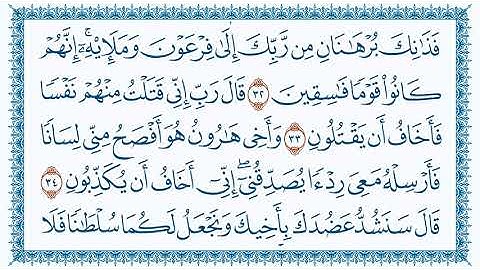 فَذَٰنِكَ بُرْهَٰنَانِ مِن رَّبِّكَ إِلَىٰ فِرْعَوْنَ وَمَلَإِي۟هِۦٓ ۚ إِنَّهُمْ
كَانُوا۟ قَوْمًا فَٰسِقِينَ ٣٢ قَالَ رَبِّ إِنِّى قَتَلْتُ مِنْهُمْ نَفْسًا
فَأَخَافُ أَن يَقْتُلُونِ ٣٣ وَأَخِى هَٰرُونُ هُوَ أَفْصَحُ مِنِّى لِسَانًا
فَأَرْسِلْهُ مَعِىَ رِدْءًا يُصَدِّقُنِىٓ ۖ إِنِّىٓ أَخَافُ أَن يُكَذِّبُونِ ٣٤
قَالَ سَنَشُدُّ عَضُدَكَ بِأَخِيكَ وَنَجْعَلُ لَكُمَا سُلْطَٰنًا فَلَا